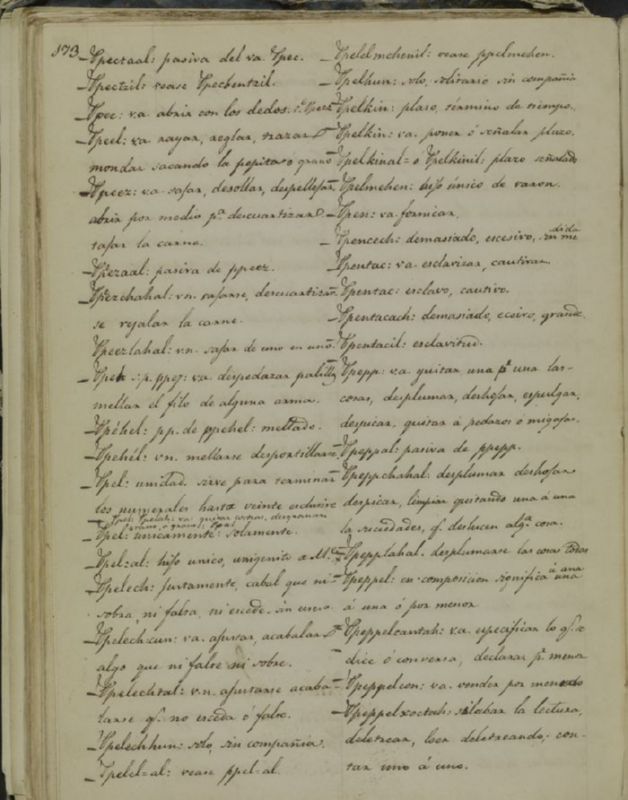 173
– Ppectaal: pasiva del va. Ppec.
– Ppectzil: vease Ppecbentzil.
– Ppec: va. abrir con los dedos.
– Ppeel: va rayar, reglar, trazar
mondar sacando la pepita o grano
– Ppeez: va. rafar, desollar, despellejar
abrir por medio pa. descuartizar
rafar la carne.
– Ppezaal: pasiva de ppeez.
– Ppezchahal: vn. rafarse, descuartizar
se rejalar la carne.
Ppeezlahal: vn. rafar de uno en uno.
– Ppeh s. p. ppej: va. despedazar palillo
mellar el filo de alguna arma.
– Ppéhel: pp. de ppehel: mellado.
– Ppehél: vn. mellarse desportillarse
– Ppel: unidad. sirve para terminar
los numerales hasta veinte exclusive
va: quitar desgranar
grano, o granos
– Ppel: unicamente: solamente.
– Ppel-al: hijo unico, unigenito a M.
– Ppelech: justamente, cabal que ni
sobra, ni falta, ni escede.
– Ppelech-cun: va. ajustar, acabalar
algo que ni falte ni sobre.
– Ppelechtal: vn. ajustarse acaba-
larse qe. no esceda ó falte.
– Ppelechhun: solo, sin compañia.
– Ppelel-al: vease ppel-al.
– Ppelelmehenil: vease ppelmehen.
– Ppelhun: solo, solitario sin compañia
– Ppelkin: plazo, término de tiempo.
– Ppelkin: va. poner ó señalar plazo.
– Ppelkinal= o Ppelkinil: plazo señalado
– Ppelmehen: hijo único de varon.
– Ppen: va. fornicar.
– Ppencech: demasiado, escesivo, sin me
dida
– Ppentac: va. esclavizar, cautivar.
– Ppentac: esclavo, cautivo.
– Ppentacach: demasiado, grande.
– Ppentacil: esclavitud.
– Ppepp: va. quitar una pr. una las
cosas, desplumar, deshojar, espulgar,
despicar, quitar á pedazos o migajas.
– Ppeppal: pasiva de ppepp.
– Ppeppchahal. desplumar deshojar
despicar, limpiar quitando una á una
la suciedades, qe. deslucen alga. cosa.
– Ppepplahal. desplumarse las cosas todas
– Ppeppel: en composicion significa una
á una
á una ó por menor
– Ppeppelcantah: va. especificar lo qe. se
dice ó conversa, declarar pr. menor
– Ppeppelcon: va. vender por menudo
– Ppeppelxoctah: silabar la lectura,
deletrear, leer deletreando, con-
tar uno á uno.